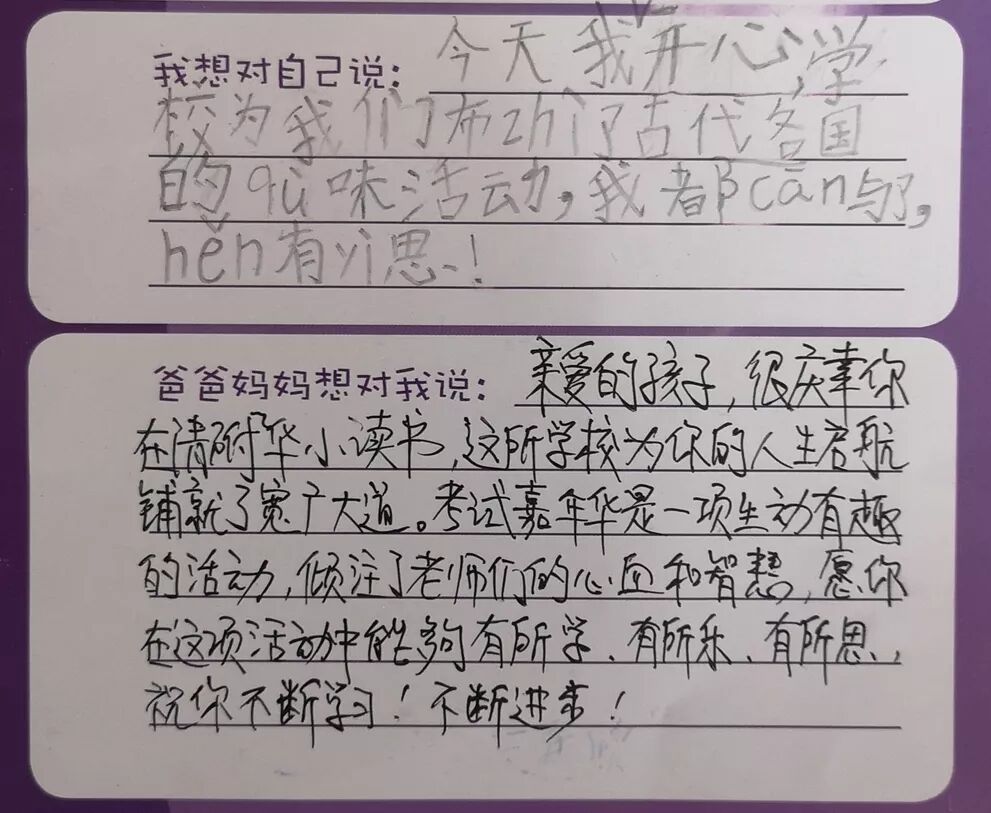 我想对自己说：今天我开心,学
校为我们布功了古代各国
的qù味活动,我者阝cān与了,
hěn有yì思！
爸爸妈妈想对我说：亲爱的孩子,很庆幸你
在清附华小读书,这所学校为你的人生启航
铺就了宽广大道。考试嘉年华是一项生动有趣
的活动,倾注了老师们的心血和智慧,愿你
在这项活动中能够有所学、有所乐、有所思,
祝你不断学习！不断进步！